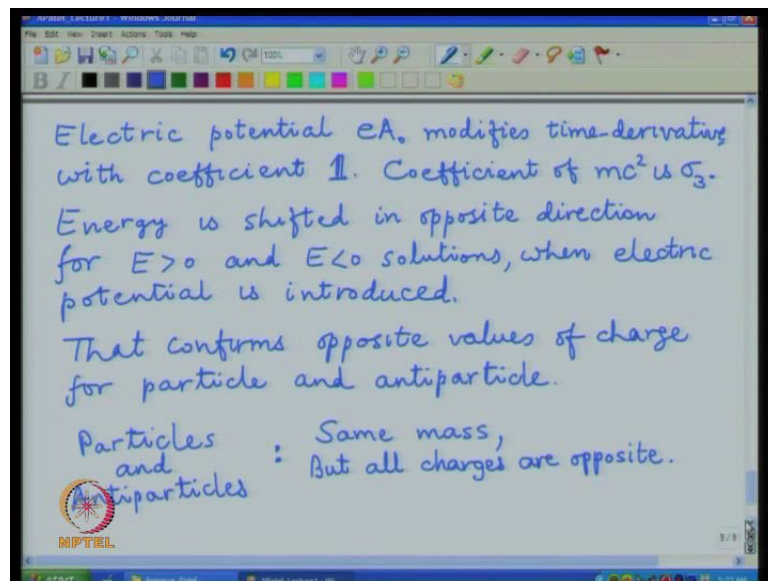 APatel_Lecture1 - Windows Journal
File Edit View Insert Actions Tools Help
100%
B I
Electric potential eA₀ modifies time-derivative,
with coefficient 1. Coefficient of mc² is σ₃.
Energy is shifted in opposite direction
for E>0 and E<0 solutions, when electric
potential is introduced.
That confirms opposite values of charge
for particle and antiparticle.
Particles
and
Antiparticles
: Same mass,
But all charges are opposite.
NPTEL
9/9
start